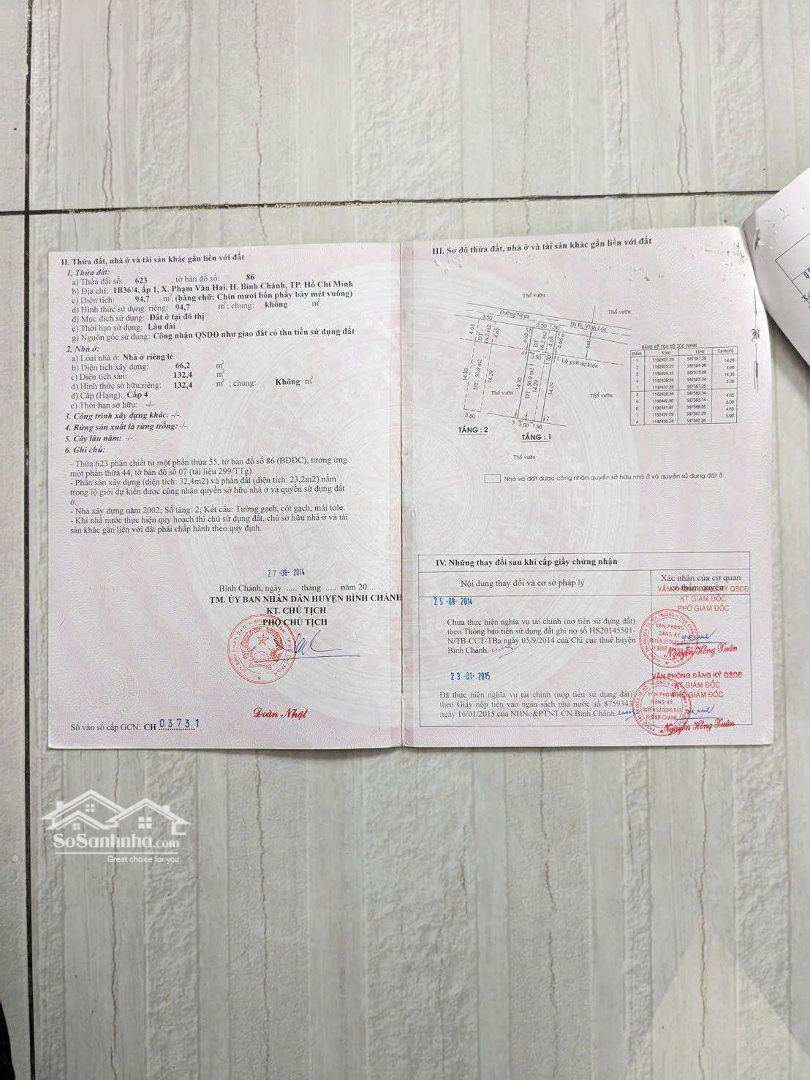 II. Thửa đất, nhà ở và tài sản khác gắn liền với đất
1. Thửa đất:
a) Thửa đất số: 623 , tờ bản đồ số: 86
b) Địa chỉ: 1B36/4, ấp 1, X. Phạm Văn Hai, H. Bình Chánh, TP. Hồ Chí Minh
c) Diện tích: 94,7 m² (bằng chữ: Chín mươi bốn phẩy bảy mét vuông)
d) Hình thức sử dụng: riêng: 94,7 m²; chung: không m²
đ) Mục đích sử dụng: Đất ở tại đô thị
e) Thời hạn sử dụng: Lâu dài
g) Nguồn gốc sử dụng: Công nhận QSDĐ như giao đất có thu tiền sử dụng đất
2. Nhà ở:
a) Loại nhà ở: Nhà ở riêng lẻ
b) Diện tích xây dựng: 66,2 m²
c) Diện tích sàn: 132,4 m²
d) Hình thức sở hữu: riêng: 132,4 m² , chung: Không m²
đ) Cấp (Hạng): Cấp 4
e) Thời hạn sở hữu: -/-
3. Công trình xây dựng khác: -/-
4. Rừng sản xuất là rừng trồng: -/-
5. Cây lâu năm: -/-
6. Ghi chú:
- Thửa 623 phân chiết từ một phần thửa 55, tờ bản đồ số 86 (BĐĐC), tương ứng
một phần thửa 44, tờ bản đồ số 07 (tài liệu 299/TTg)
- Phần sàn xây dựng (diện tích: 32,4m2) và phần đất (diện tích: 23,2m2) nằm
trong lộ giới dự kiến được công nhận quyền sở hữu nhà ở và quyền sử dụng đất
ở.
- Nhà xây dựng năm 2002; Số tầng: 2, Kết cấu: Tường gạch, cột gạch, mái tole.
- Khi nhà nước thực hiện quy hoạch thì chủ sử dụng đất, chủ sở hữu nhà ở và tài
sản khác gắn liền với đất phải chấp hành theo quy định.
27-08-2014
Bình Chánh, ngày ..... tháng ..... năm 20...
TM. ỦY BAN NHÂN DÂN HUYỆN BÌNH CHÁNH
KT. CHỦ TỊCH
PHÓ CHỦ TỊCH
Đoàn Nhật
Số vào sổ cấp GCN: CH 03731
III. Sơ đồ thửa đất, nhà ở và tài sản khác gắn liền với đất
Thổ vườn
Đường Nhựa
Đi Đ. Vĩnh Lộc
Thổ vườn
Lộ giới dự kiến
Thổ vườn
Thổ vườn
TẦNG : 2
TẦNG : 1
Thổ vườn
BẢNG KÊ TỌA ĐỘ GÓC RANH
Nhà và đất được công nhận quyền sở hữu nhà ở và quyền sử dụng đất ở.
IV. Những thay đổi sau khi cấp giấy chứng nhận
Nội dung thay đổi và cơ sở pháp lý
Xác nhận của cơ quan
có thẩm quyền
VĂN PHÒNG ĐĂNG KÝ QSDĐ
KT GIÁM ĐỐC
PHÓ GIÁM ĐỐC
25-09-2014
Chưa thực hiện nghĩa vụ tài chính (nợ tiền sử dụng đất)
theo Thông báo tiền sử dụng đất ghi nợ số HS20145501-
N/TB-CCT-TBa ngày 05/9/2014 của Chi cục thuế huyện
Bình Chánh.
VĂN PHÒNG
ĐĂNG KÝ
Nguyễn Hồng Xuân
23-01-2015
VĂN PHÒNG ĐĂNG KÝ QSDĐ
KT GIÁM ĐỐC
PHÓ GIÁM ĐỐC
Đã thực hiện nghĩa vụ tài chính (nộp tiền sử dụng đất)
theo Giấy nộp tiền vào ngân sách nhà nước số 8759343
ngày 16/01/2015 của NHNo&PTNT CN Bình Chánh.
VĂN PHÒNG
ĐĂNG KÝ
QUYỀN SỬ DỤNG ĐẤT
H.BÌNH CHÁNH
Nguyễn Hồng Xuân
SoSanhnha.com
Great choice for you